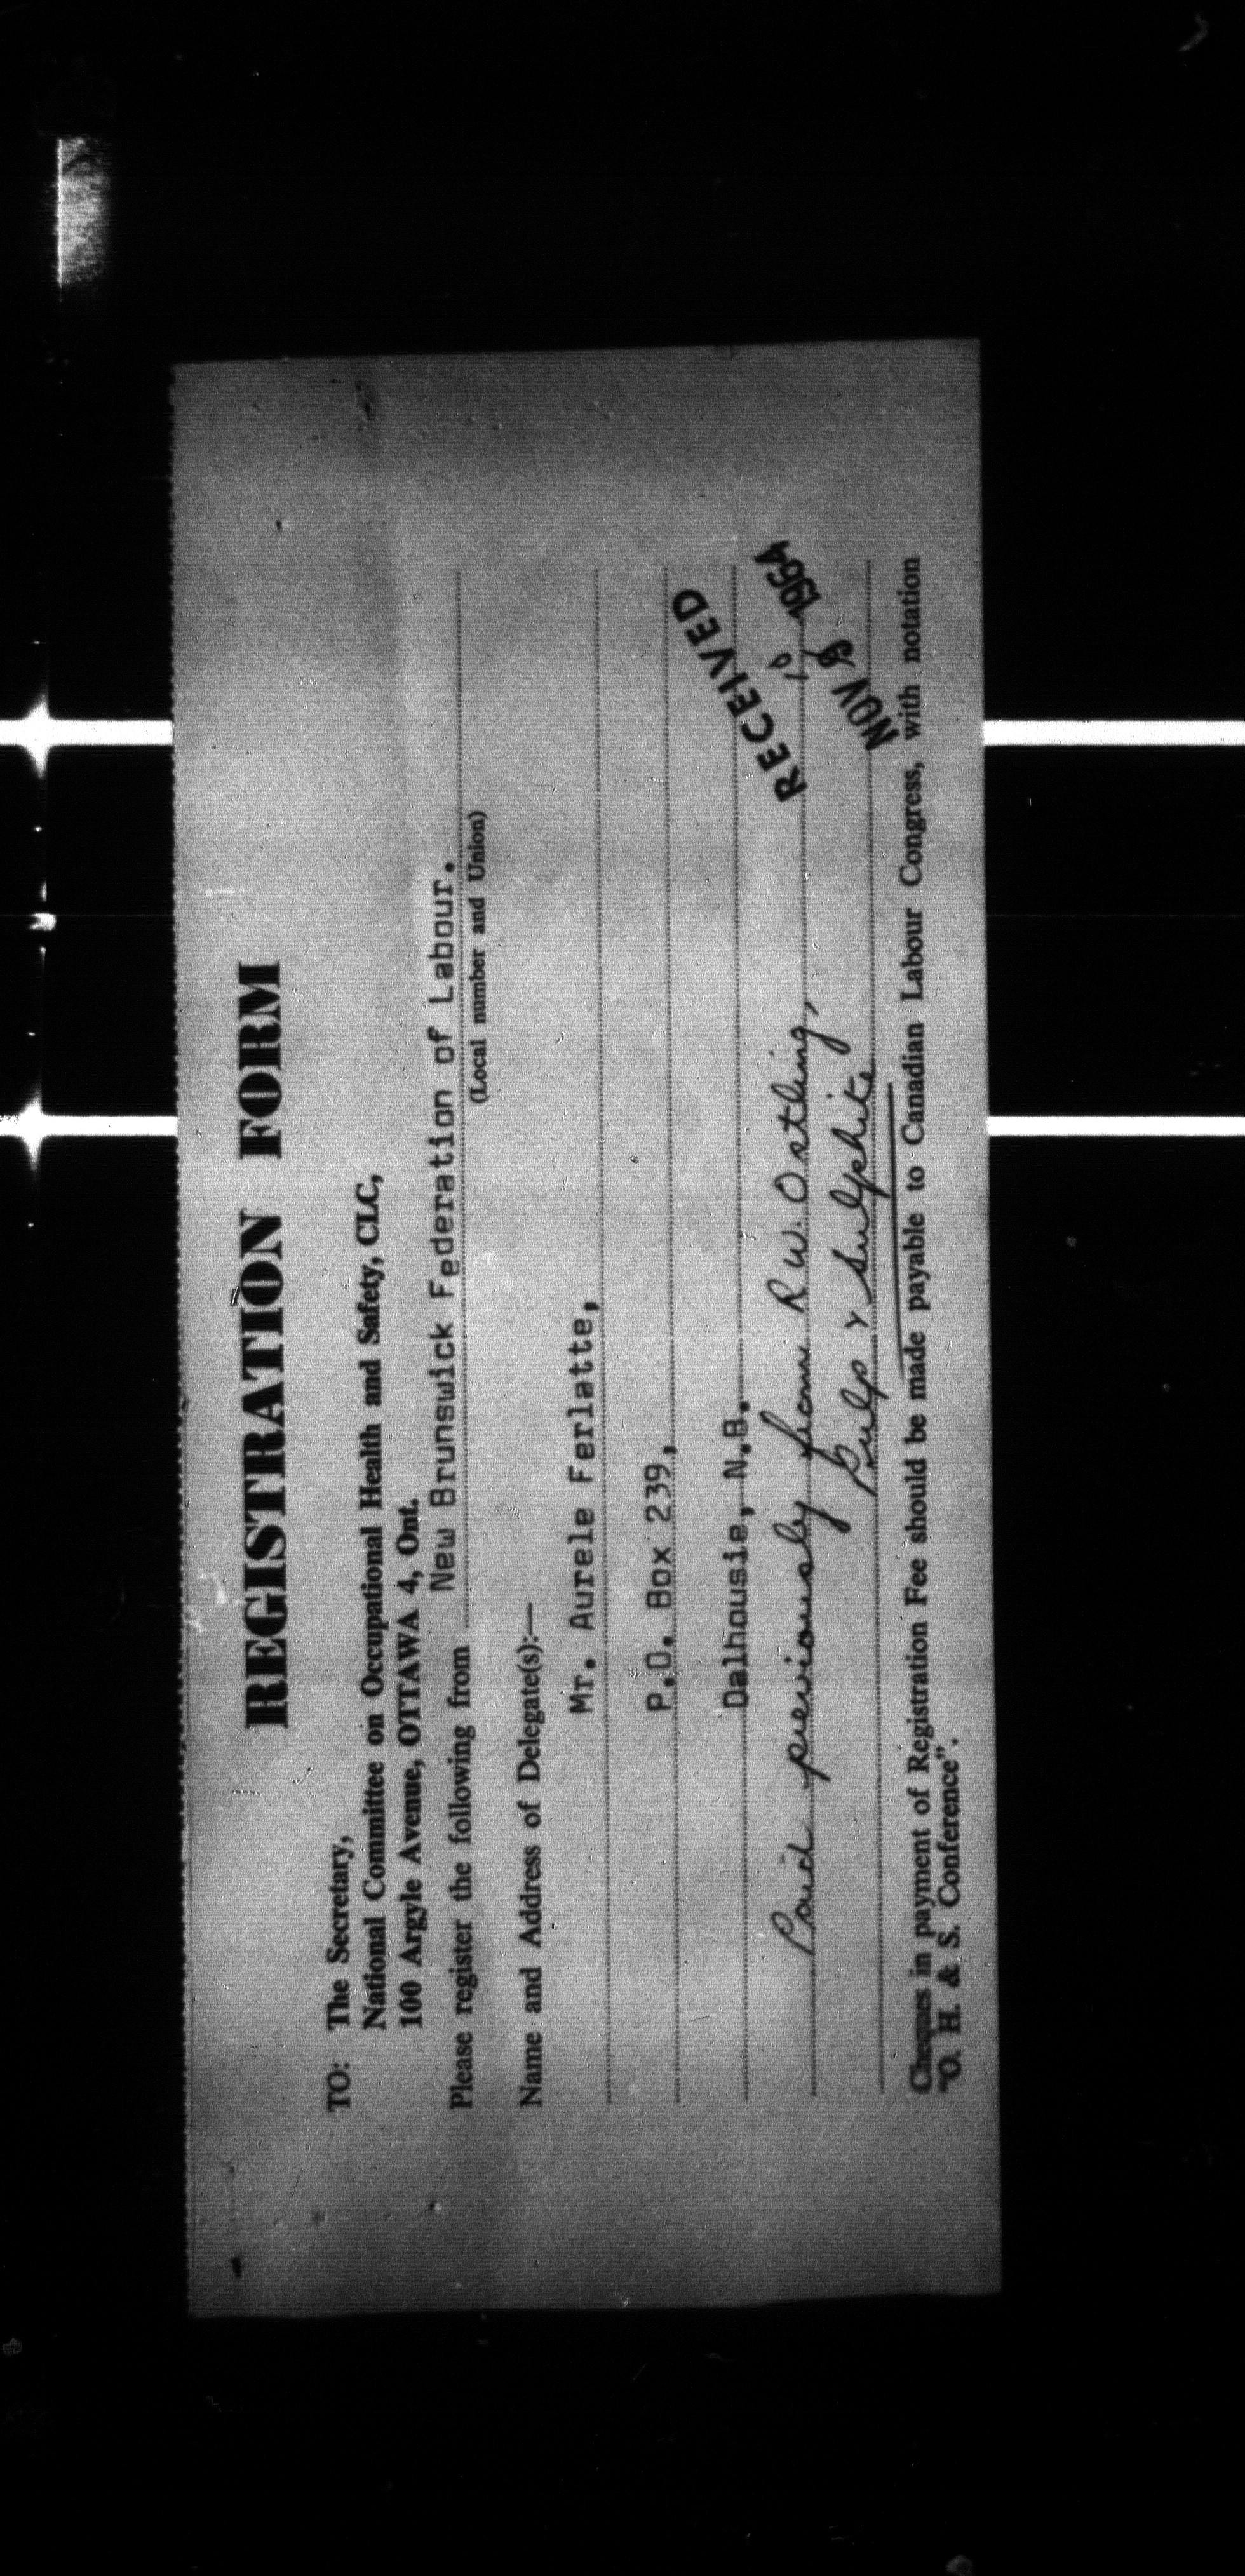 REGISTRATION FORM
TO: The Secretary,
National Committee on Occupational Health and Safety, CLC,
100 Argyle Avenue, OTTAWA 4, Ont.
Please register the following from New Brunswick Federation of Labour.
(Local number and Union)
Name and Address of Delegate(s):—
Mr. Aurele Ferlatte,
P.O. Box 239,
Dalhousie, N.B.
RECEIVED
NOV 1964
Paid previously from R W. Ostling,
Pulp & Sulphite
Cheques in payment of Registration Fee should be made payable to Canadian Labour Congress, with notation
"O. H. & S. Conference".